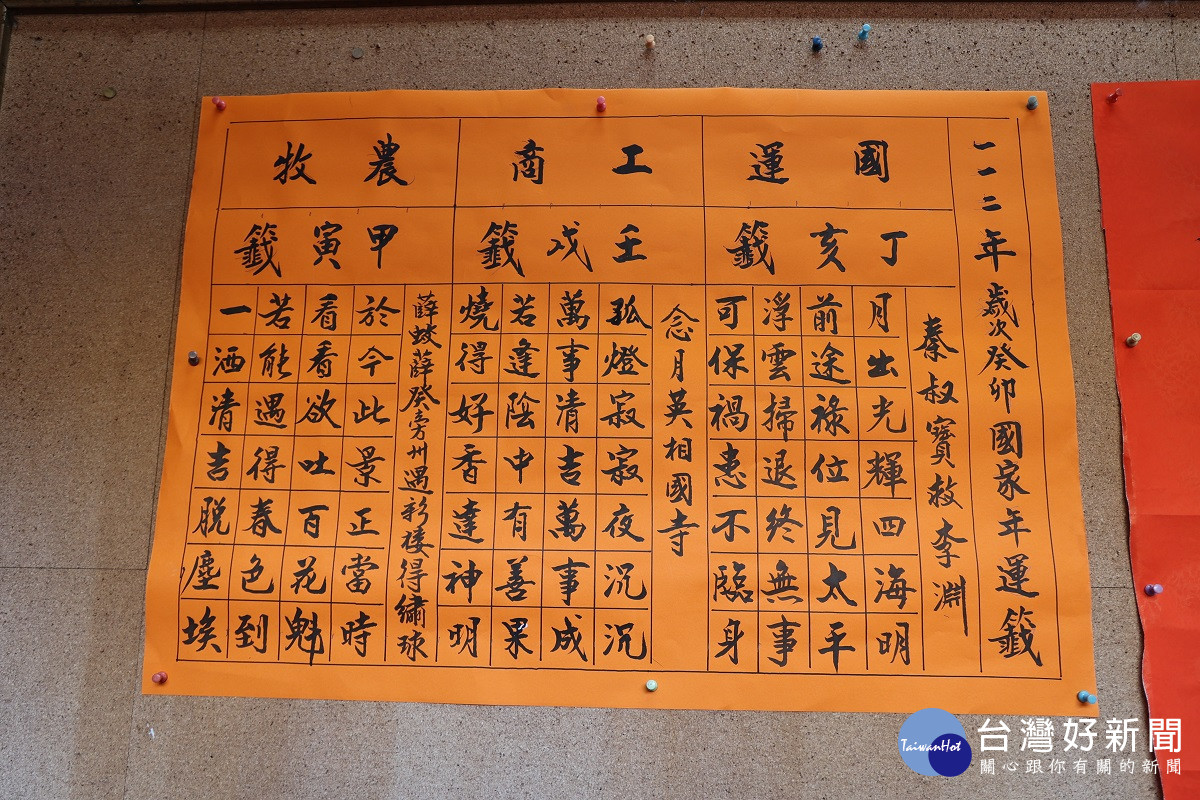 一一二年歲次癸卯國家年運籤
國運
丁亥籤
秦叔寶救李淵
月出光輝四海明
前途祿位見太平
浮雲掃退終無事
可保禍患不臨身
工商
壬戌籤
念月英相國寺
孤燈寂寂夜沉沉
萬事清吉萬事成
若逢陰中有善果
燒得好香達神明
農牧
甲寅籤
薛蛟薛癸旁州遇彩樓得繡球
於今此景正當時
看看欲吐百花魁
若能遇得春色到
一洒清吉脫塵埃
TaiwanHot
台灣好新聞
關心跟你有關的新聞